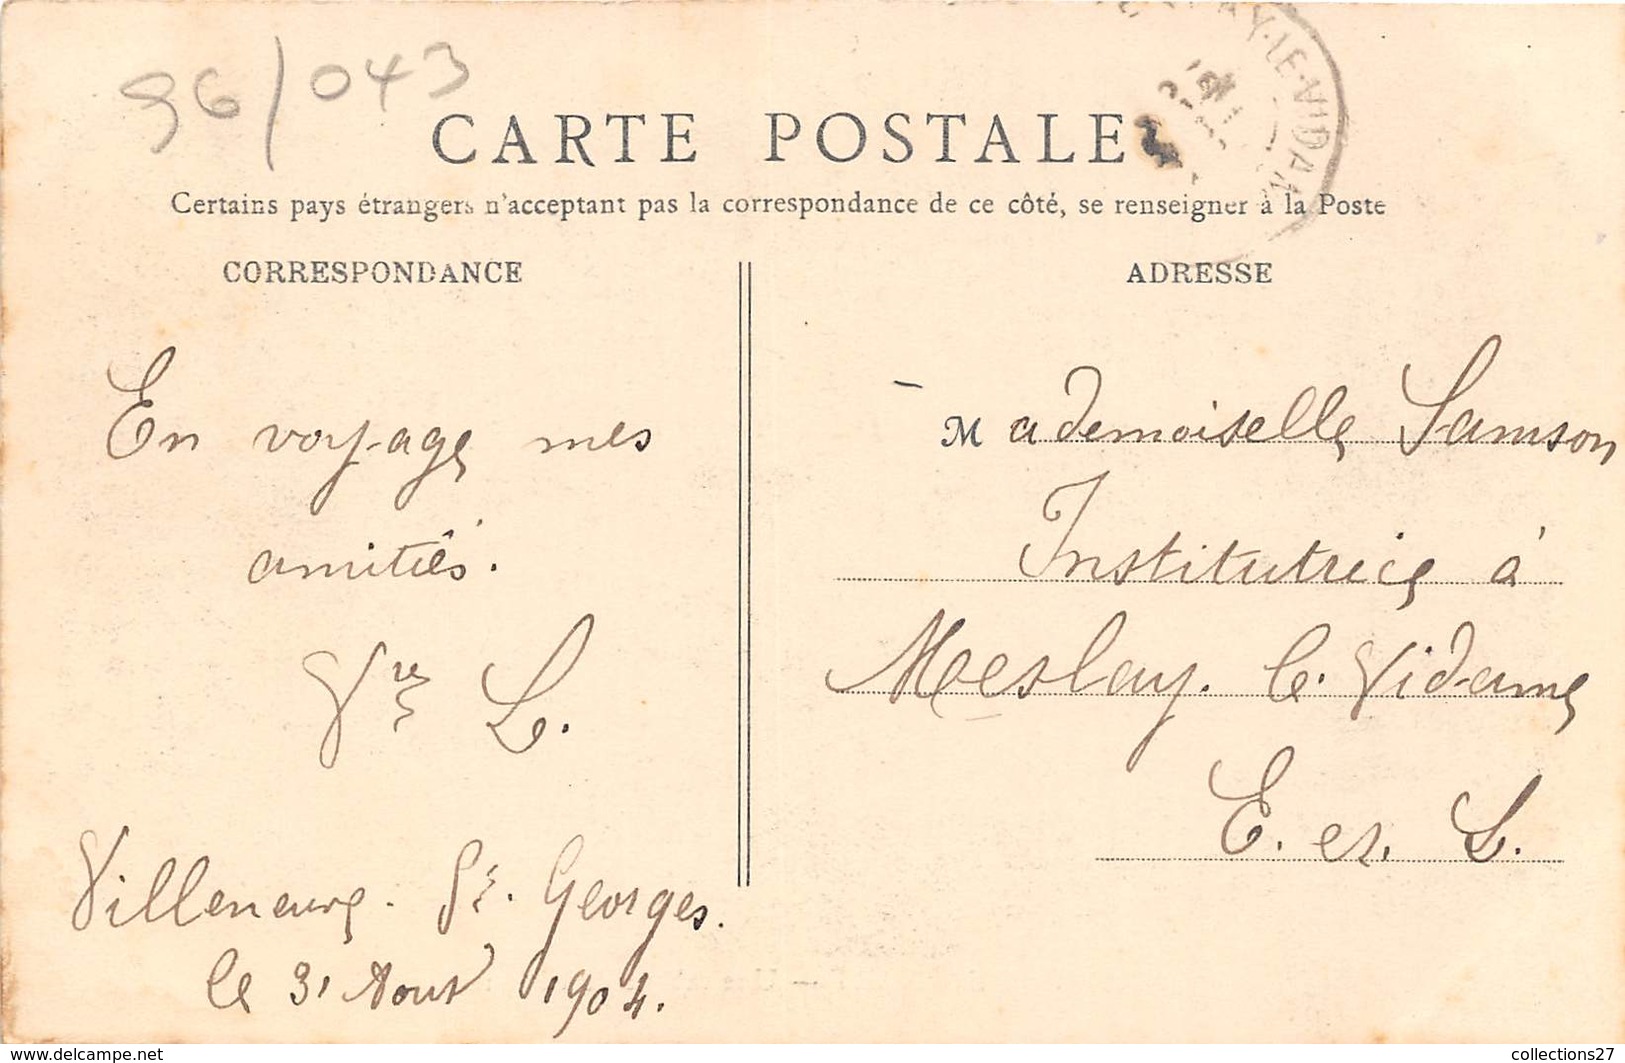 96/043
CARTE POSTALE
AY-LE-VIDAM
Certains pays étrangers n'acceptant pas la correspondance de ce côté, se renseigner à la Poste
CORRESPONDANCE
En voyage mes
amitiés.
Vve L.
Villeneuve-St. Georges.
le 31 Aout 1904.
ADRESSE
Mademoiselle Samson
Institutrice à
Meslay. le. Vidame
E. et. L.
www.delcampe.net
collections27